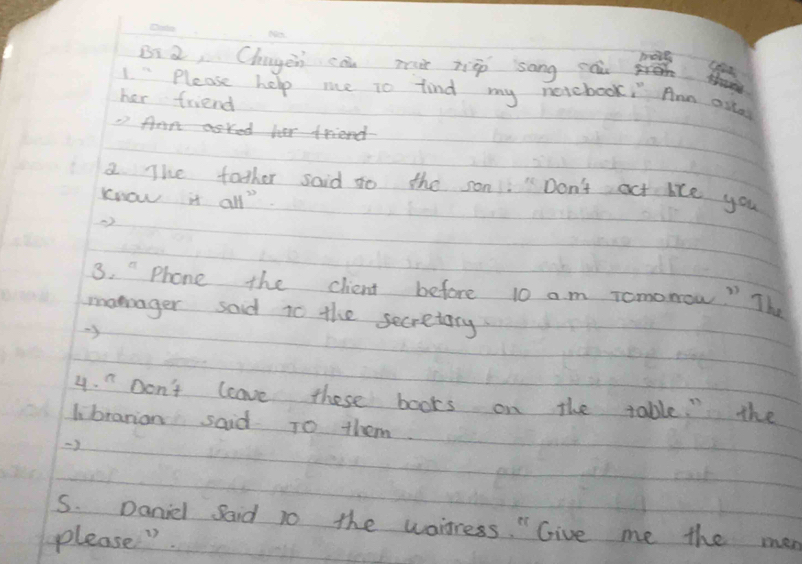 Date No.
Bs 2. Chuyển câu trực tiếp sang câu
1. " Please help me to find my notebook." Ann asked
her friend
=> Ann asked her friend
2. The father said to the son: "Don't act like you
know it all".
=>
3. " Phone the client before 10 am tomorrow." The
manager said to the secretary
=>
4. " Don't leave these books on the table." the
librarian said to them.
=>
5. Daniel said to the waitress. "Give me the men
please".